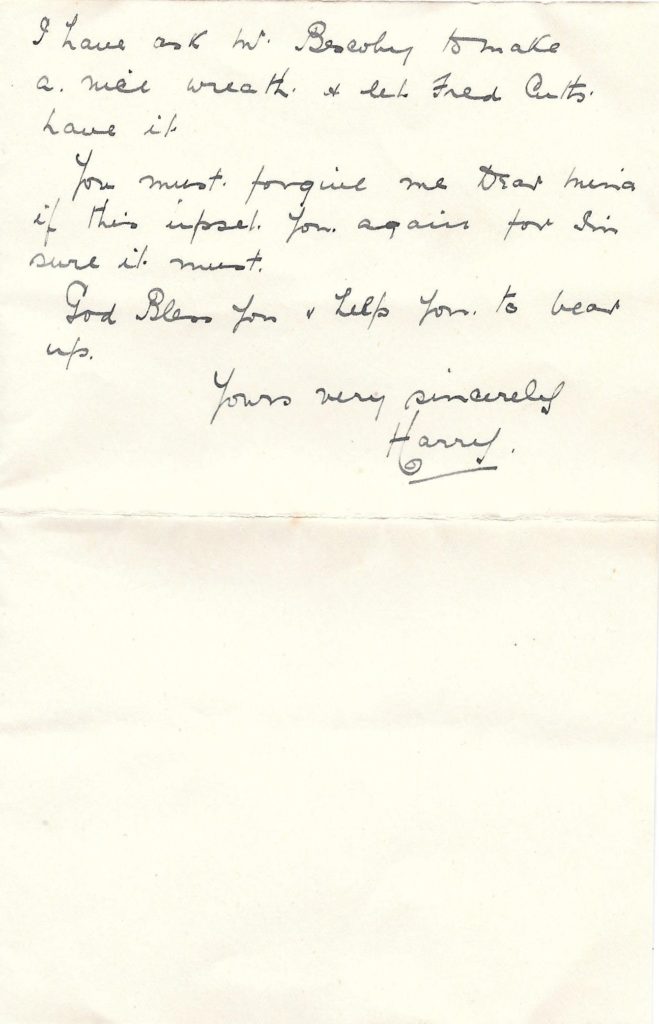 I have ask Mr. Bescoby to make
a. nice wreath. & let Fred Cutts.
have it
You must. forgive me Dear Mina
if this upset. you. again for I'm
sure it must.
God Bless you & help you. to bear
up.
Yours very sincerely
Harry.